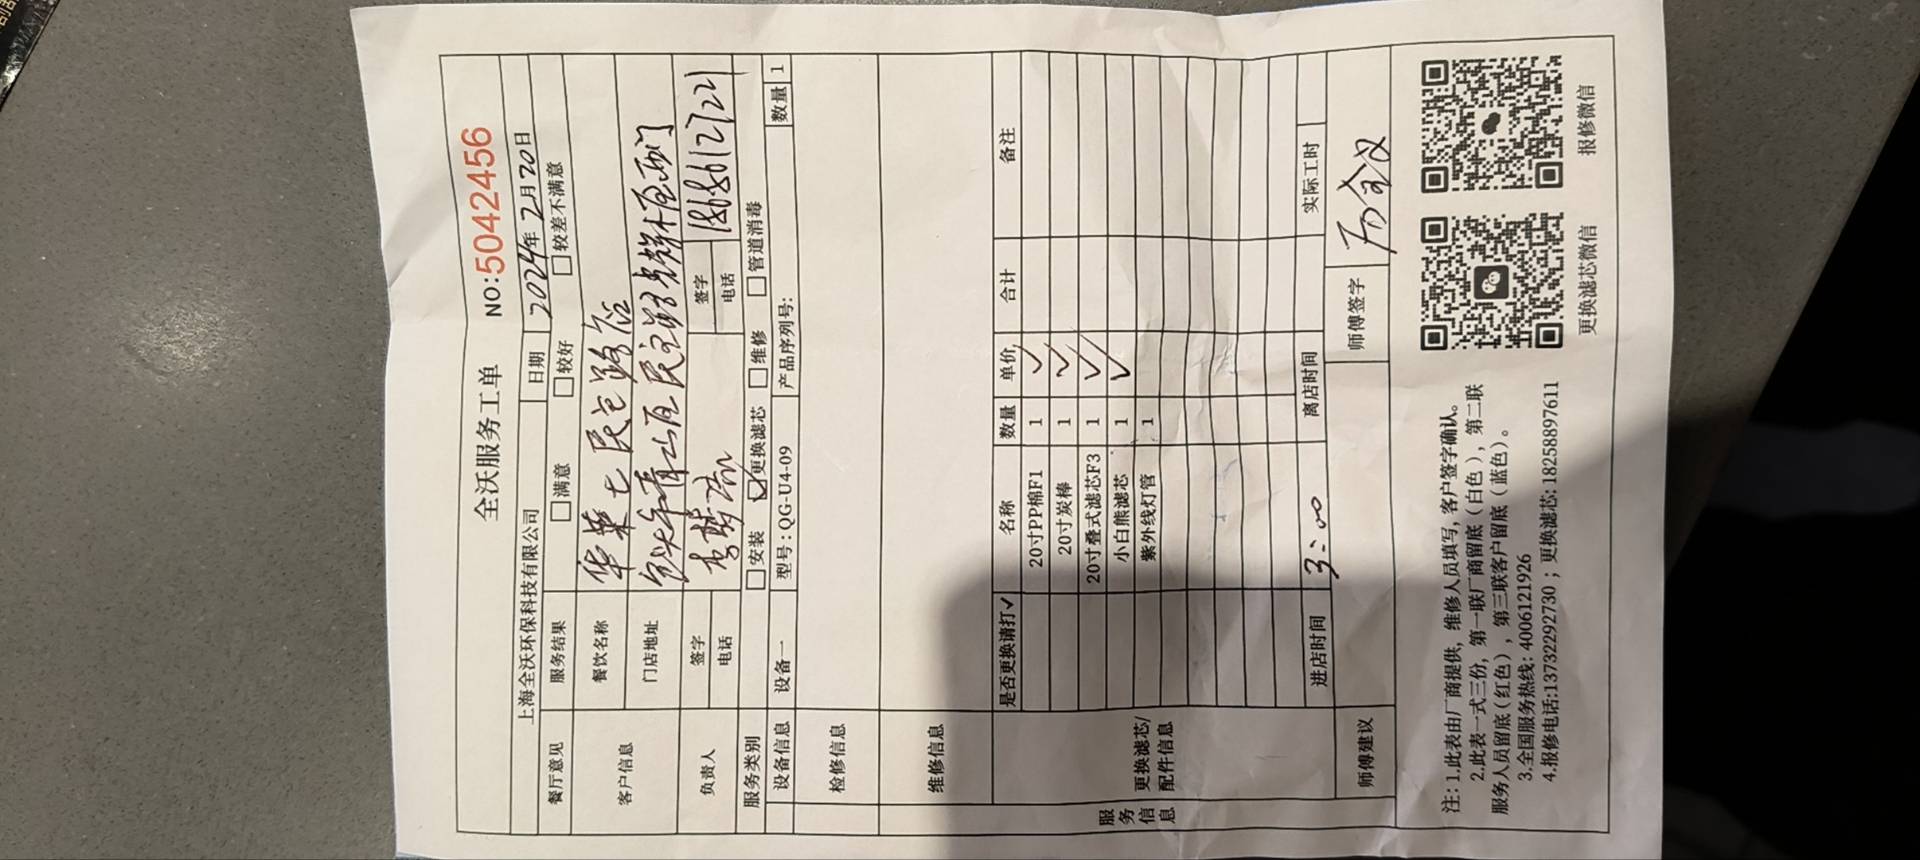 全沃服务工单
NO:5042456
上海全沃环保科技有限公司 日期 2024年2月20日
餐厅意见 服务结果 满意 较好 较差不满意
客户信息 餐饮名称 华莱士民主路店
门店地址 青山区民主路
负责人 签字 签字
电话 电话 18686127221
服务类别 安装 更换滤芯 维修 管道消毒
设备信息 设备一 型号:QG-U4-09 产品序列号: 数量 1
检修信息
维修信息
服务信息
更换滤芯/配件信息
是否更换请打✓ 名称 数量 单价 合计 备注
20寸PP棉F1 1 ✓
20寸炭棒 1 ✓
20寸叠式滤芯F3 1 ✓
小白熊滤芯 1 ✓
紫外线灯管 1
进店时间 3:00 离店时间 实际工时
师傅建议 师傅签字
注: 1.此表由厂商提供，维修人员填写，客户签字确认。
2.此表一式三份，第一联厂商留底（白色），第二联
服务人员留底（红色），第三联客户留底（蓝色）。
3.全国服务热线: 4006121926
4.报修电话:13732292730 ; 更换滤芯: 18258897611
更换滤芯微信
报修微信